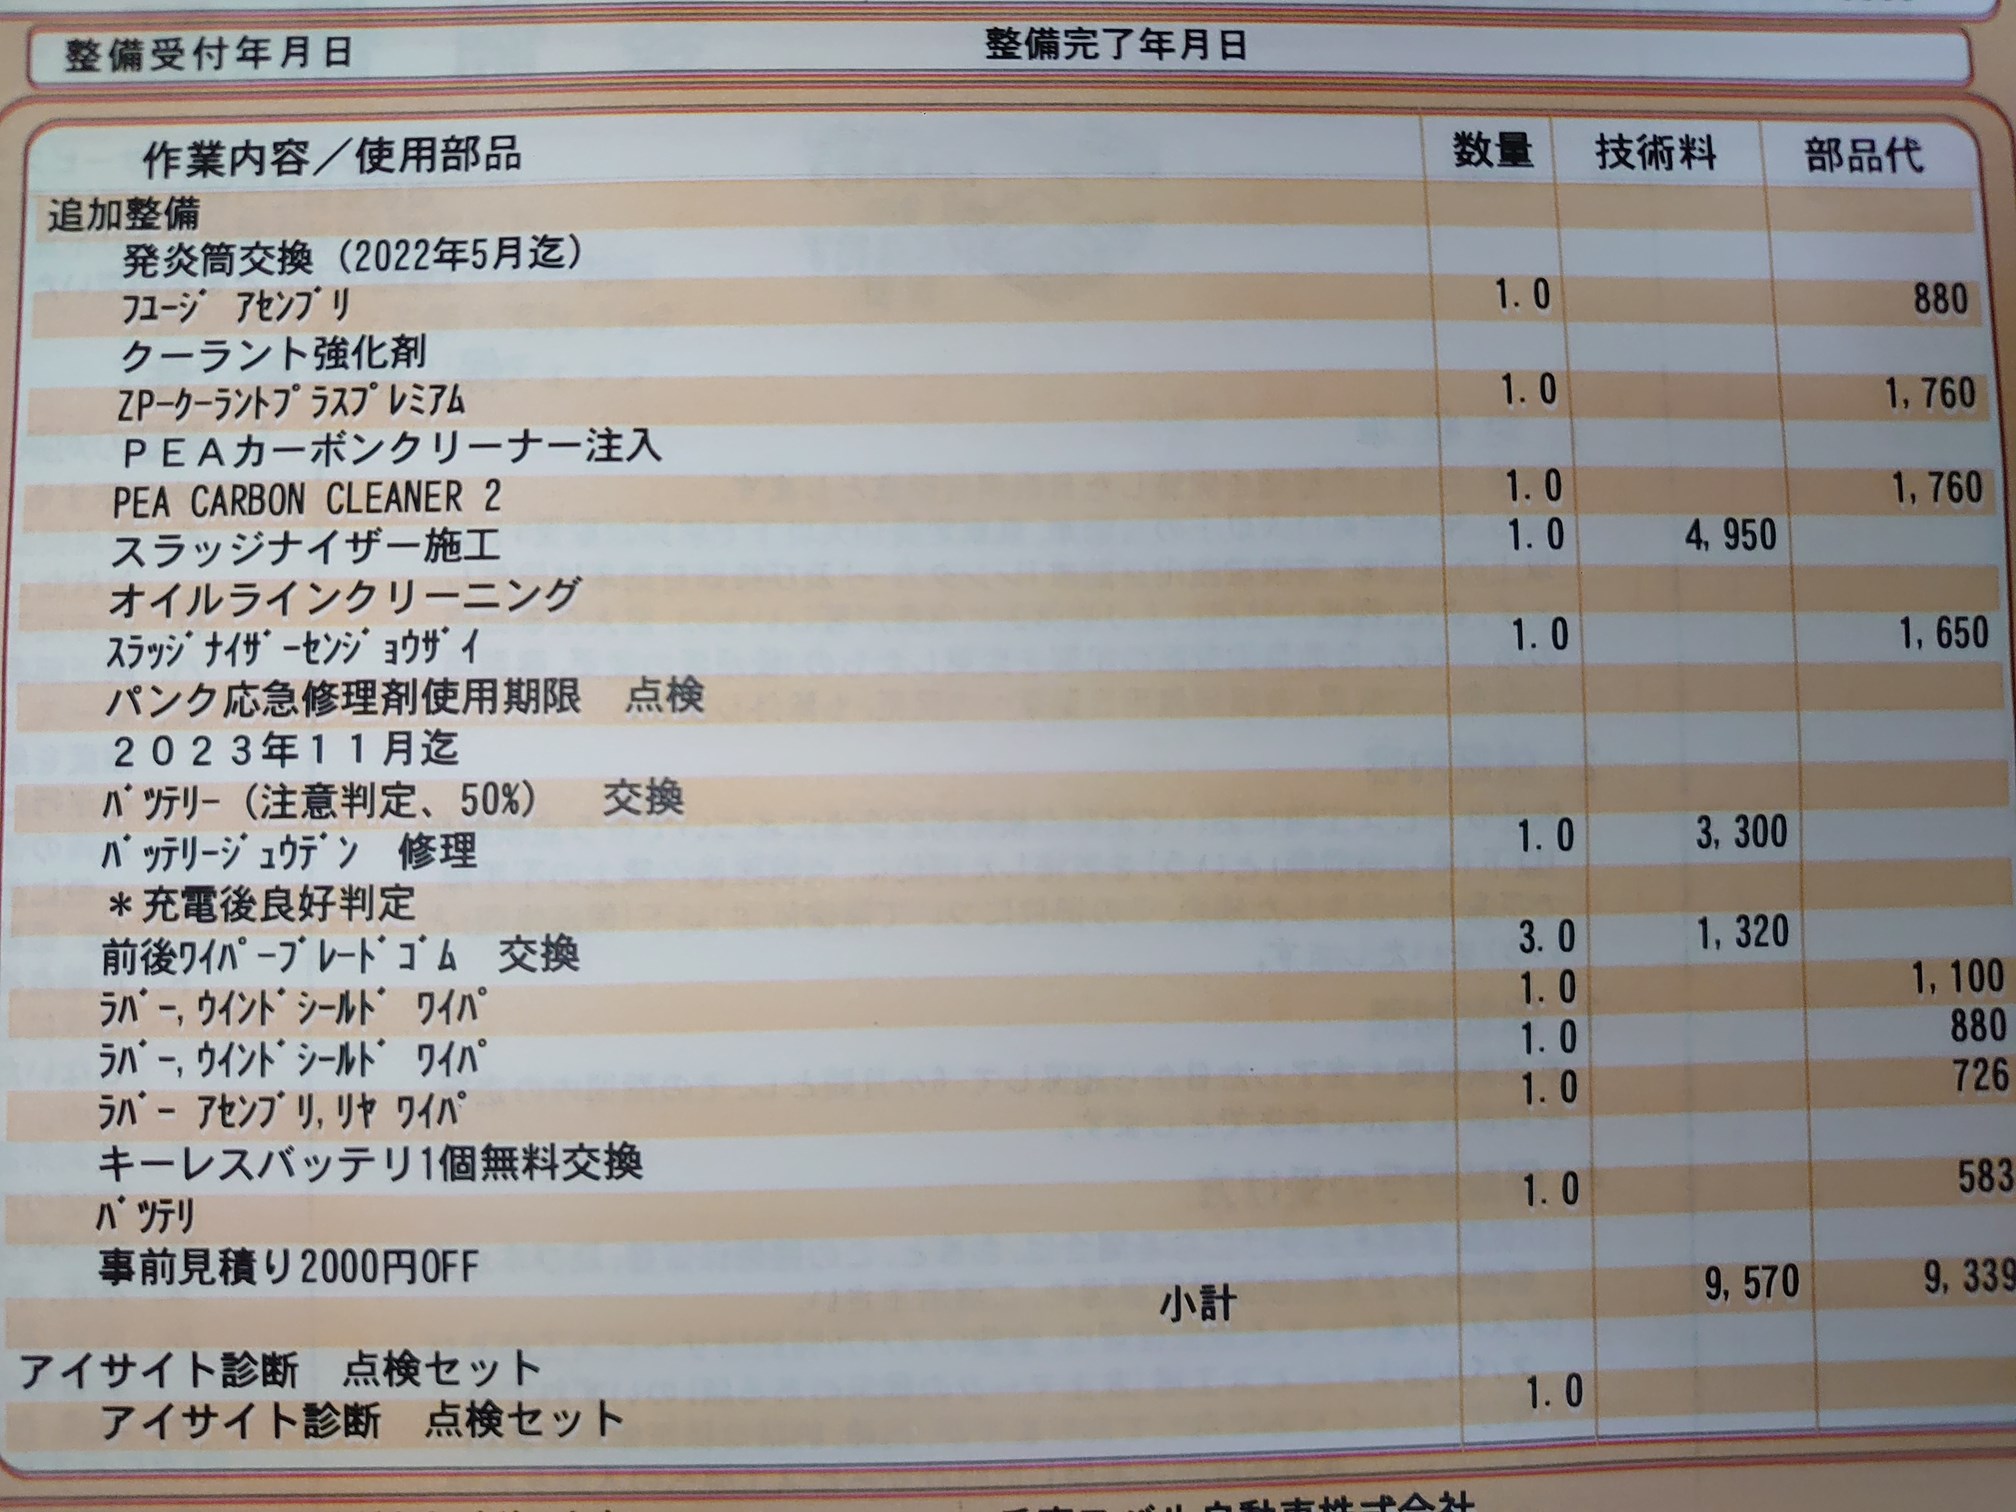 整備受付年月日 整備完了年月日
作業内容／使用部品 数量 技術料 部品代
追加整備
発炎筒交換（2022年5月迄）
ﾌﾕｰｼﾞ ｱｾﾝﾌﾞﾘ 1.0 880
クーラント強化剤
ZPｰｸｰﾗﾝﾄﾌﾟﾗｽﾌﾟﾚﾐｱﾑ 1.0 1,760
ＰＥＡカーボンクリーナー注入
PEA CARBON CLEANER 2 1.0 1,760
スラッジナイザー施工 1.0 4,950
オイルラインクリーニング
ｽﾗｯｼﾞﾅｲｻﾞｰｾﾝｼﾞｮｳｻﾞｲ 1.0 1,650
パンク応急修理剤使用期限　点検
２０２３年１１月迄
ﾊﾞﾂﾃﾘｰ（注意判定、50%）　交換
ﾊﾞｯﾃﾘｰｼﾞｭｳﾃﾞﾝ　修理 1.0 3,300
＊充電後良好判定
前後ﾜｲﾊﾟｰﾌﾞﾚｰﾄﾞｺﾞﾑ　交換 3.0 1,320
ﾗﾊﾞｰ,ｳｲﾝﾄﾞｼｰﾙﾄﾞ ﾜｲﾊﾟ 1.0 1,100
ﾗﾊﾞｰ,ｳｲﾝﾄﾞｼｰﾙﾄﾞ ﾜｲﾊﾟ 1.0 880
ﾗﾊﾞｰ ｱｾﾝﾌﾞﾘ,ﾘﾔ ﾜｲﾊﾟ 1.0 726
キーレスバッテリ1個無料交換
ﾊﾞﾂﾃﾘ 1.0 583
事前見積り2000円OFF
小計 9,570 9,339
アイサイト診断　点検セット
アイサイト診断　点検セット 1.0
自動車株式会社